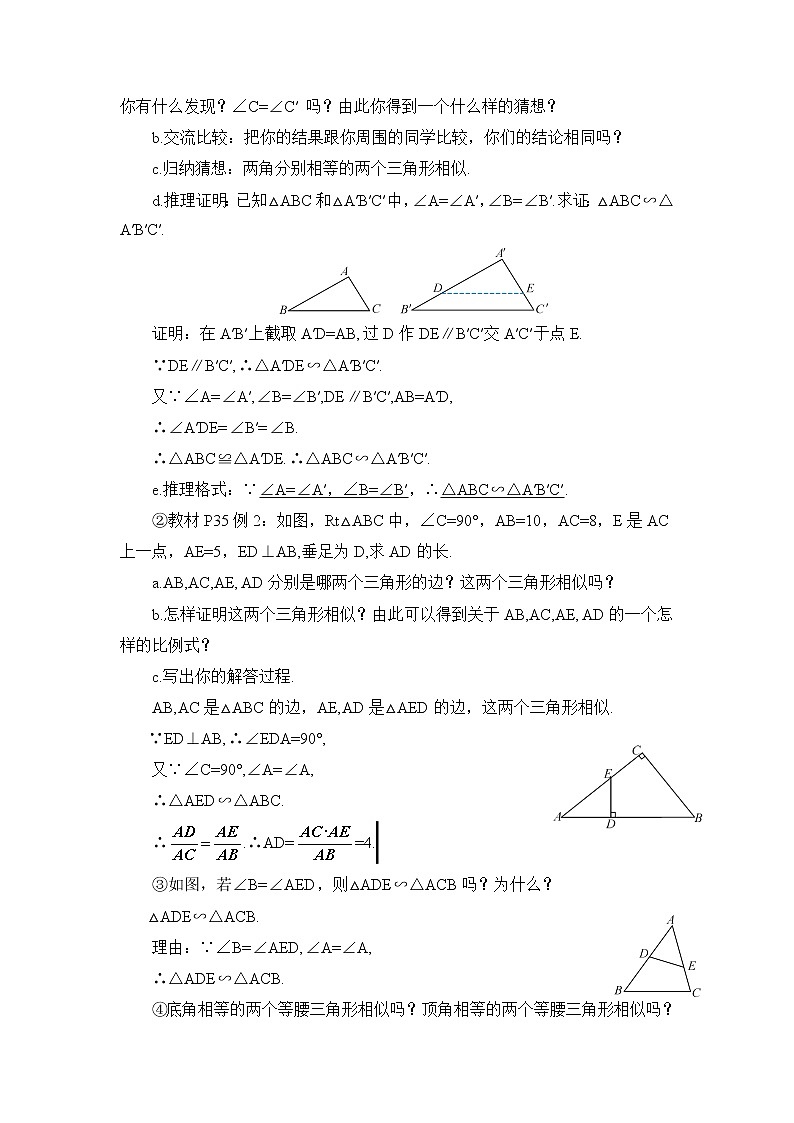 你有什么发现？∠C=∠C′ 吗？由此你得到一个什么样的猜想？
b.交流比较：把你的结果跟你周围的同学比较，你们的结论相同吗？
c.归纳猜想：两角分别相等的两个三角形相似.
d.推理证明：已知△ABC和△A′B′C′中,∠A=∠A′,∠B=∠B′.求证：△ABC∽△
A′B′C′.
A
B
C
A′
D
E
B′
C′
证明：在A′B′上截取A′D=AB,过D作DE∥B′C′交A′C′于点E.
∵DE∥B′C′,∴△A′DE∽△A′B′C′.
又∵∠A=∠A′,∠B=∠B′,DE∥B′C′,AB=A′D,
∴∠A′DE=∠B′=∠B.
∴△ABC≌△A′DE.∴△ABC∽△A′B′C′.
e.推理格式：∵∠A=∠A′，∠B=∠B′,∴△ABC∽△A′B′C′.
②教材P35例2：如图，Rt△ABC中，∠C=90°，AB=10，AC=8，E是AC
上一点，AE=5，ED⊥AB,垂足为D,求AD的长.
a.AB,AC,AE,AD分别是哪两个三角形的边？这两个三角形相似吗？
b.怎样证明这两个三角形相似？由此可以得到关于AB,AC,AE,AD的一个怎
样的比例式？
c.写出你的解答过程.
AB,AC是△ABC的边，AE,AD是△AED的边，这两个三角形相似.
∵ED⊥AB,∴∠EDA=90°,
又∵∠C=90°,∠A=∠A,
∴△AED∽△ABC.
∴AD/AC=AE/AB.∴AD=AC·AE/AB=4.
C
E
A
D
B
③如图，若∠B=∠AED，则△ADE∽△ACB吗？为什么？
△ADE∽△ACB.
理由：∵∠B=∠AED,∠A=∠A,
∴△ADE∽△ACB.
A
D
E
B
C
④底角相等的两个等腰三角形相似吗？顶角相等的两个等腰三角形相似吗？